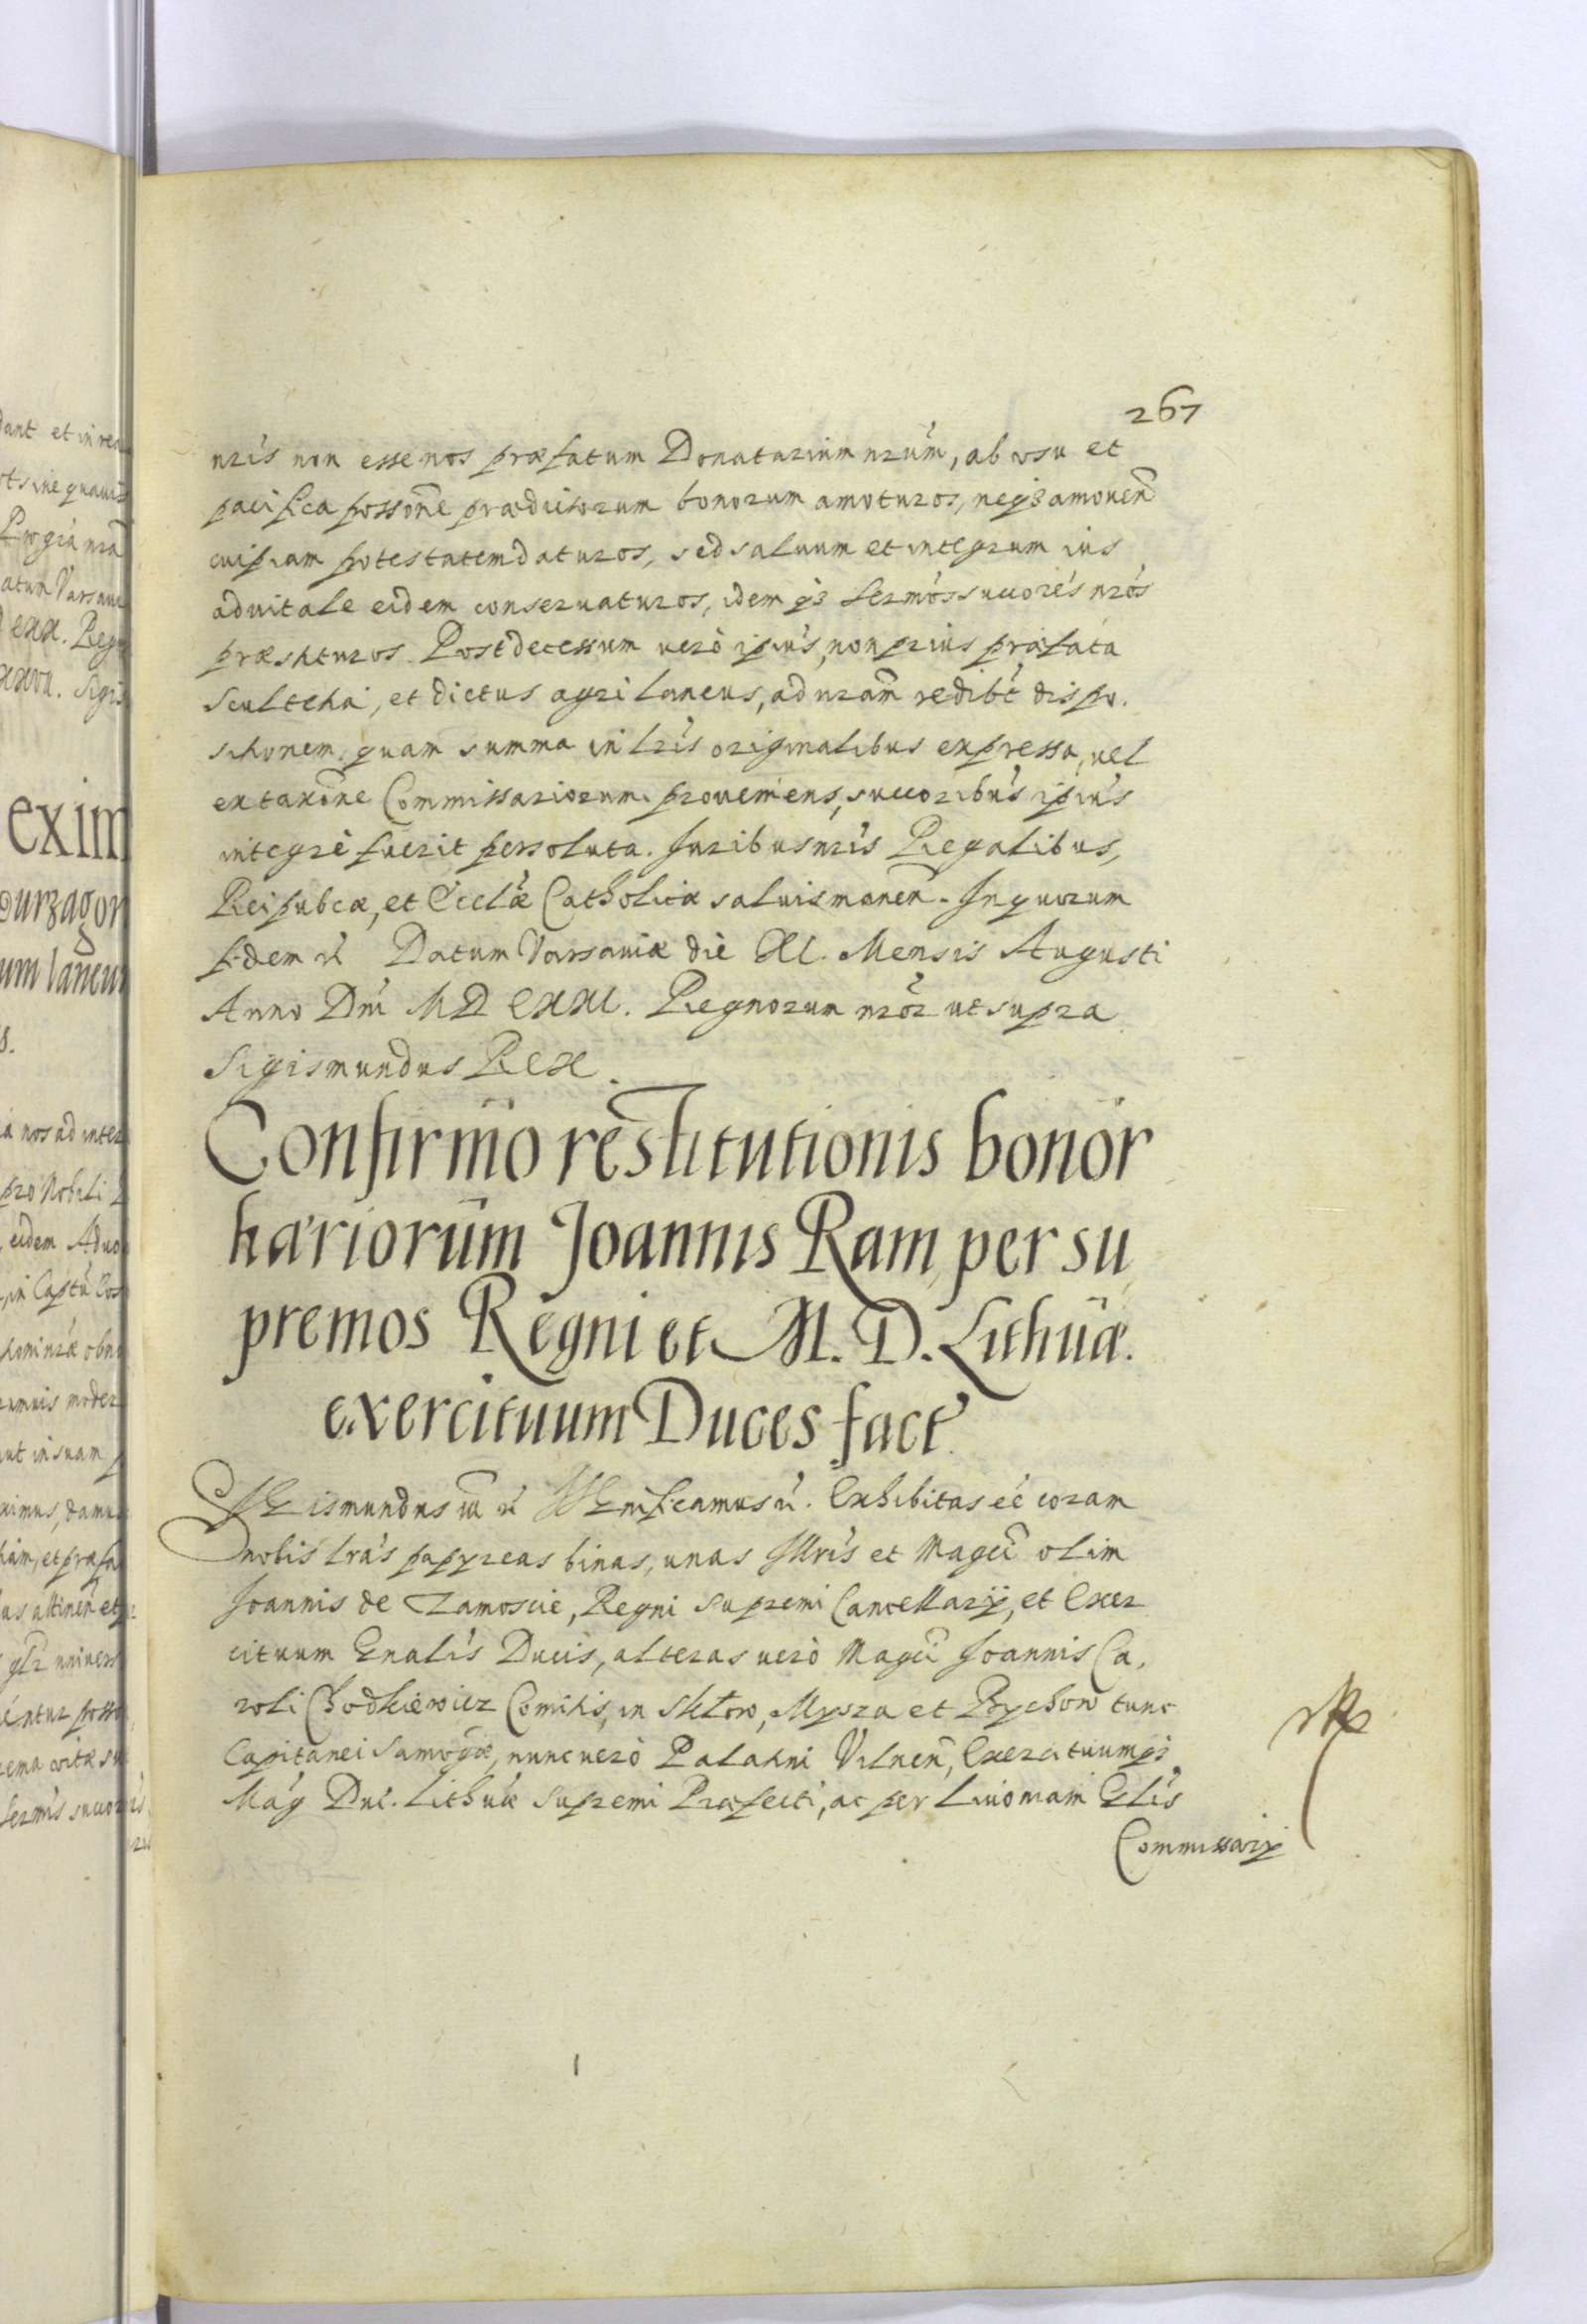 267
nris non esse nos præfatum Donatarium nrum, ab usu et
pacifica possone prædictorum bonorum amoturos, neq3 amouen
cuipiam potestatem daturos, sed saluum et integrum ius
aduitale eidem conseruaturos, idem q3 sermos succores nros
præstituros. Post decessum uero ipius, non prius præfata
scultetia, et dictus agri laneus, ad nram redibt dispo.
sitionem, quam summa in lris originalibus expressa, uel
ex taxone Commissariorum proueniens, succoribus ipius
integrè fuerit persoluta. Juribus nris Regalibus,
Reipubcæ, et Ecclæ Catholicæ saluis manen. In quorum
fidem
Datum Varsauiæ die XI. Mensis Augusti
Anno Dni MDCXXI. Regnorum nror ut supra
Sigismundus Rex.
Confirmo restitutionis bonor
hæriorum Joannis Ram, per su
premos Regni et M. D. Lithuæ.
exercituum Duces fact.
Sigismundus
Significamus
Exhibitas eé coram
nobis lras papyreas binas, unas Illris et Magci olim
Joannis de Zamoscie, Regni supremi Cancellarij, et Exer
cituum Gnalis Ducis, alteras uero Magci Joannis Ca,
roli Chodkiewicz Comitis, in Sklow, Mysza et Bychow tunc
Capitanei Samogæ, nunc uero Palatini Vilnen, Exercituumq3
Mag Duc. Lithuæ supremi Præfecti, ac per Liuoniam Glis
Commissarij